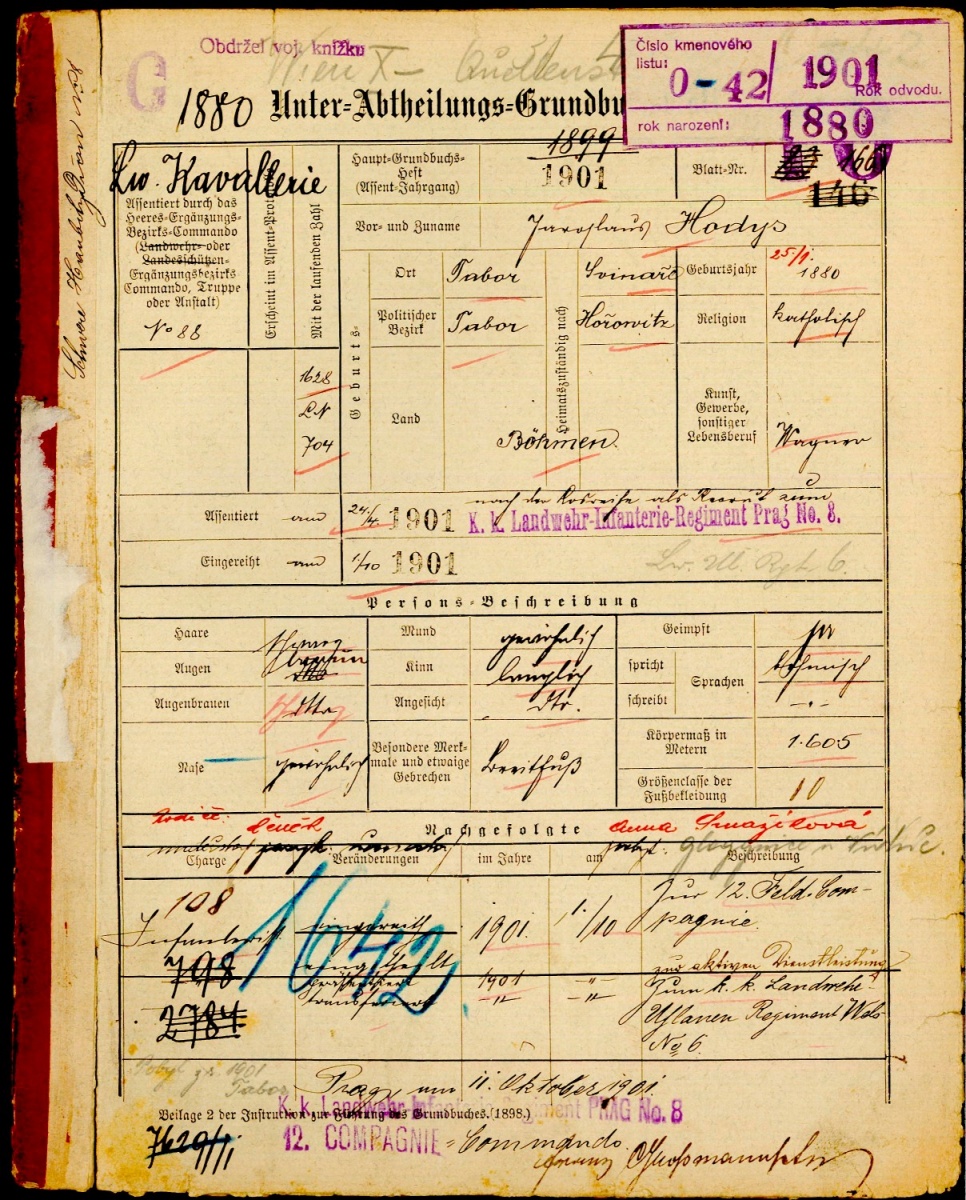 Obdržel voj. knížku
Wien X –
G
1880 Unter-Abtheilungs-Grundbu
Číslo kmenového
listu: 0-42/ 1901
Rok odvodu.
rok narození: 1880
Lw. Kavallerie
Assentiert durch das
Heeres-Ergänzungs-
Bezirks-Commando
(Landwehr- oder
Landesschützen-
Ergänzungsbezirks
Commando, Truppe
oder Anstalt)
No 88
Erscheint im Assent-Prot
Mit der laufenden Zahl
1628
LN
704
Haupt-Grundbuchs-
Heft
(Assent-Jahrgang)
1899
1901
Blatt-Nr.
166
146
Vor- und Zuname Jaroslaus Hodys
Geburts-
Ort Tabor
Politischer
Bezirk Tabor
Land Böhmen.
Heimatszuständig nach
Svinaře
Hořowitz
Geburtsjahr 25/1. 1880
Religion katholisch
Kunst,
Gewerbe,
sonstiger
Lebensberuf
Wagner
Assentiert am 24./4. 1901
nach der Losreihe als Recrut zum
K. k. Landwehr-Infanterie-Regiment Prag No. 8.
Eingereiht am 1/10 1901
Lw. Ul. Rgt. 6.
Persons-Beschreibung
Haare
Augen braun
Augenbrauen dtto
Nase gewöhnlich
Mund gewöhnlich
Kinn länglich
Angesicht dto.
Besondere Merk-
male und etwaige
Gebrechen
Breitfuß
Geimpft ja
spricht
schreibt
Sprachen
böhmisch
-"-
Körpermaß in
Metern
1.605
Größenclasse der
Fußbekleidung
10
rodiče: Čeněk
Anna Smažíková
Nachgefolgte
Charge
Veränderungen
im Jahre
am
Beschreibung
108
Infanterist
798
2784
1642
eingereiht 1901. 1./10
Zur 12. Feld-Com-
pagnie.
eingetheilt
zur aktiven Dienstleistung
1901 -"-
transferiert -"- -"-
Zum k. k. Landwehr-
Uhlanen Regiment Wels
No 6.
1901
Tabor
Prag, am 11. Oktober 1901.
K. k. Landwehr Infanterie-Regiment PRAG No. 8
Beilage 2 der Instruktion zur Führung des Grundbuches. (1898.)
12. COMPAGNIE - Commando.